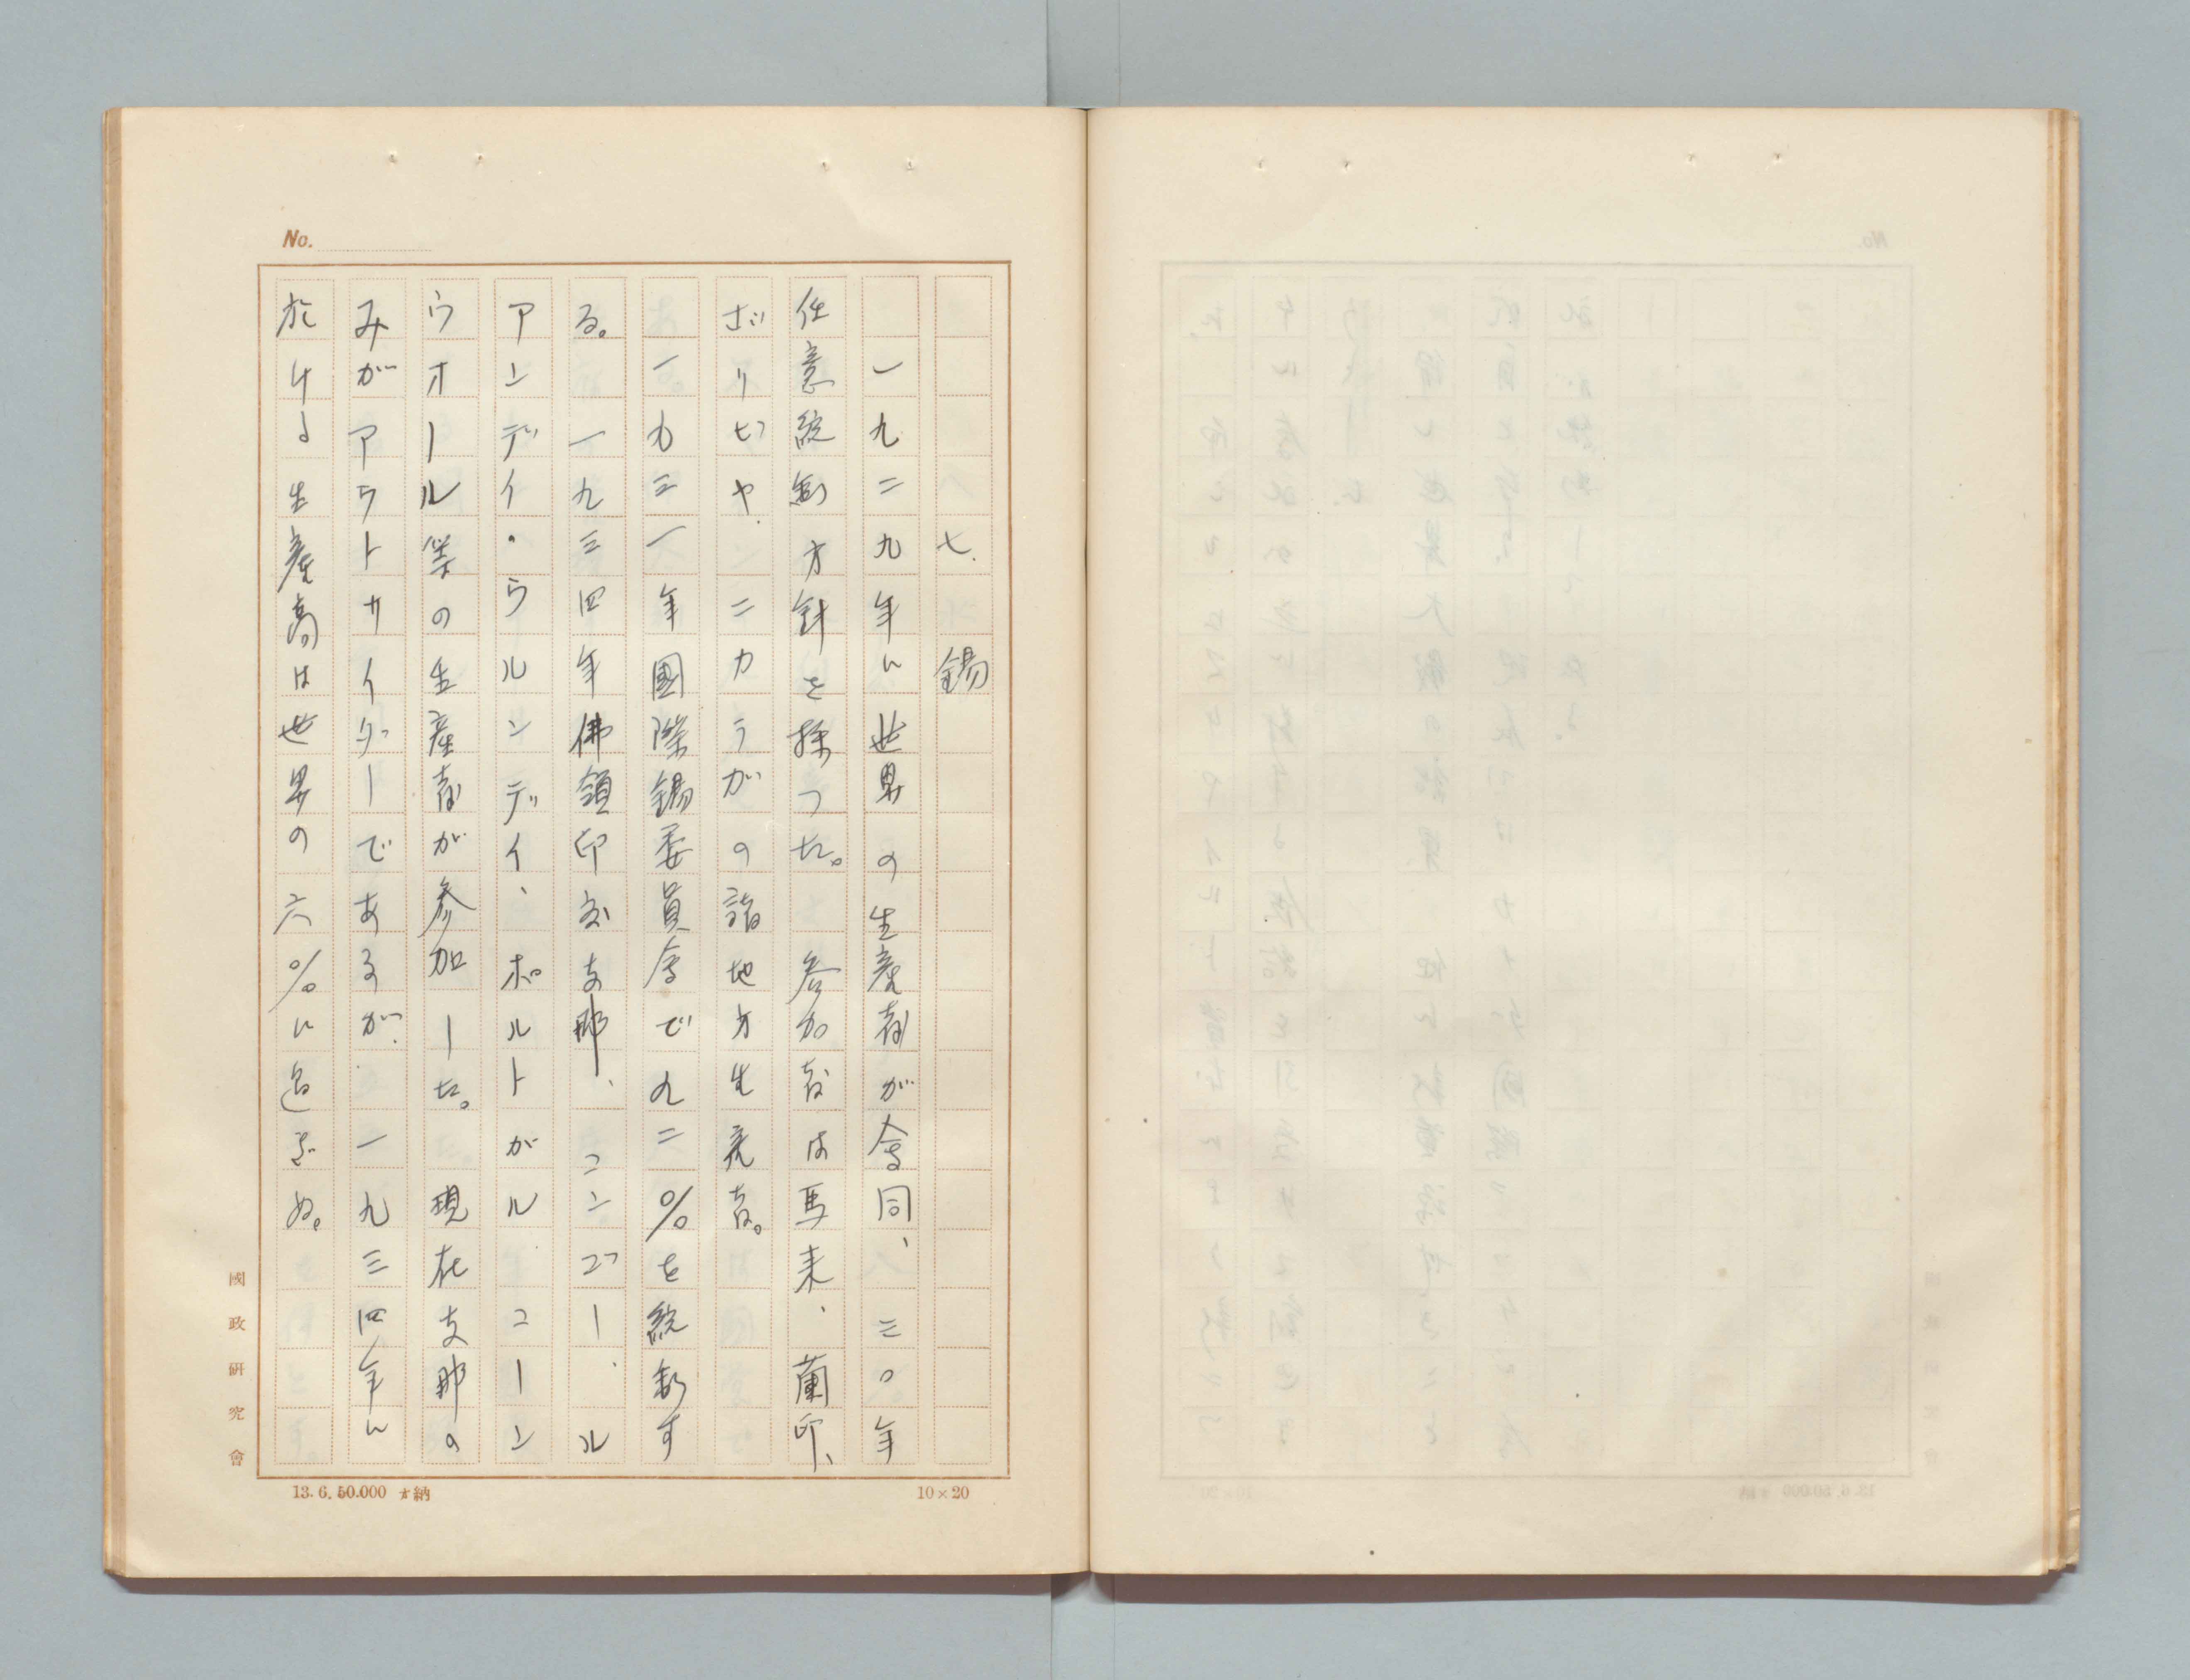 No.
七、錫
一九二九年に世界の生産者が會同、三〇年
任意統制方針を採つた。参加者は馬来、蘭印、
ボリビヤ、ニカラガの諸地方生産者。
一九三一年國際錫委員會で九二%を統制す
る。一九三四年佛領印度支那、コンゴー、ル
アンディ・ウルンディ、ポルトガル、コーン
ウオール等の生産者が参加した。現在支那の
みがアウトサイダーであるが、一九三四年に
於ける生産高は世界の六%に過ぎぬ。
國政研究會
13.6.50.000 納
10×20